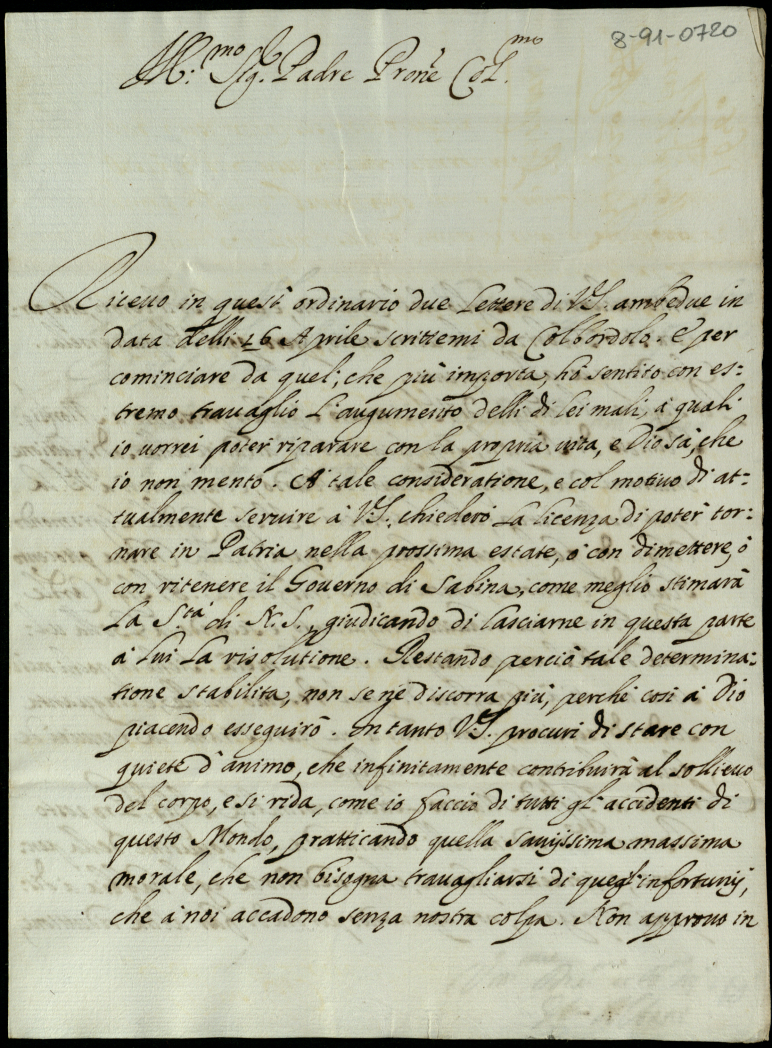 8-91-0720
Ill:mo Sig. Padre Prone Col.mo
Riceuo in quest' ordinario due Lettere di VS. ambedue in
data delli 16 Aprile scrittemi da Colbordolo. E per
cominciare da quel, che più importa, hò sentito con es=
tremo trauaglio L'augumento delli di lei mali, à quali
io uorrei poter riparare con la propria uita, e Dio sà, che
io non mento. A' tale consideratione, e col motiuo di at=
tualmente seruire à VS. chiederò La licenza di poter tor=
nare in Patria nella prossima estate, ò con dimettere, ò
con ritenere il Gouerno di Sabina, come meglio stimarà
La S.tà di N. S., giudicando di lasciarne in questa parte
à Lui La risolutione. Restando perciò tale determina=
tione stabilita, non se ne discorra più, perche così à Dio
piacendo esseguirò. In tanto VS. procuri di stare con
quiete d'animo, che infinitamente contribuirà al sollieuo
del corpo, e si rida, come io faccio di tutti gl'accidenti di
questo Mondo, pratticando quella sauijssima massima
morale, che non bisogna trauagliarsi di quegl'infortunij,
che à noi accadono senza nostra colpa. Non approuo in